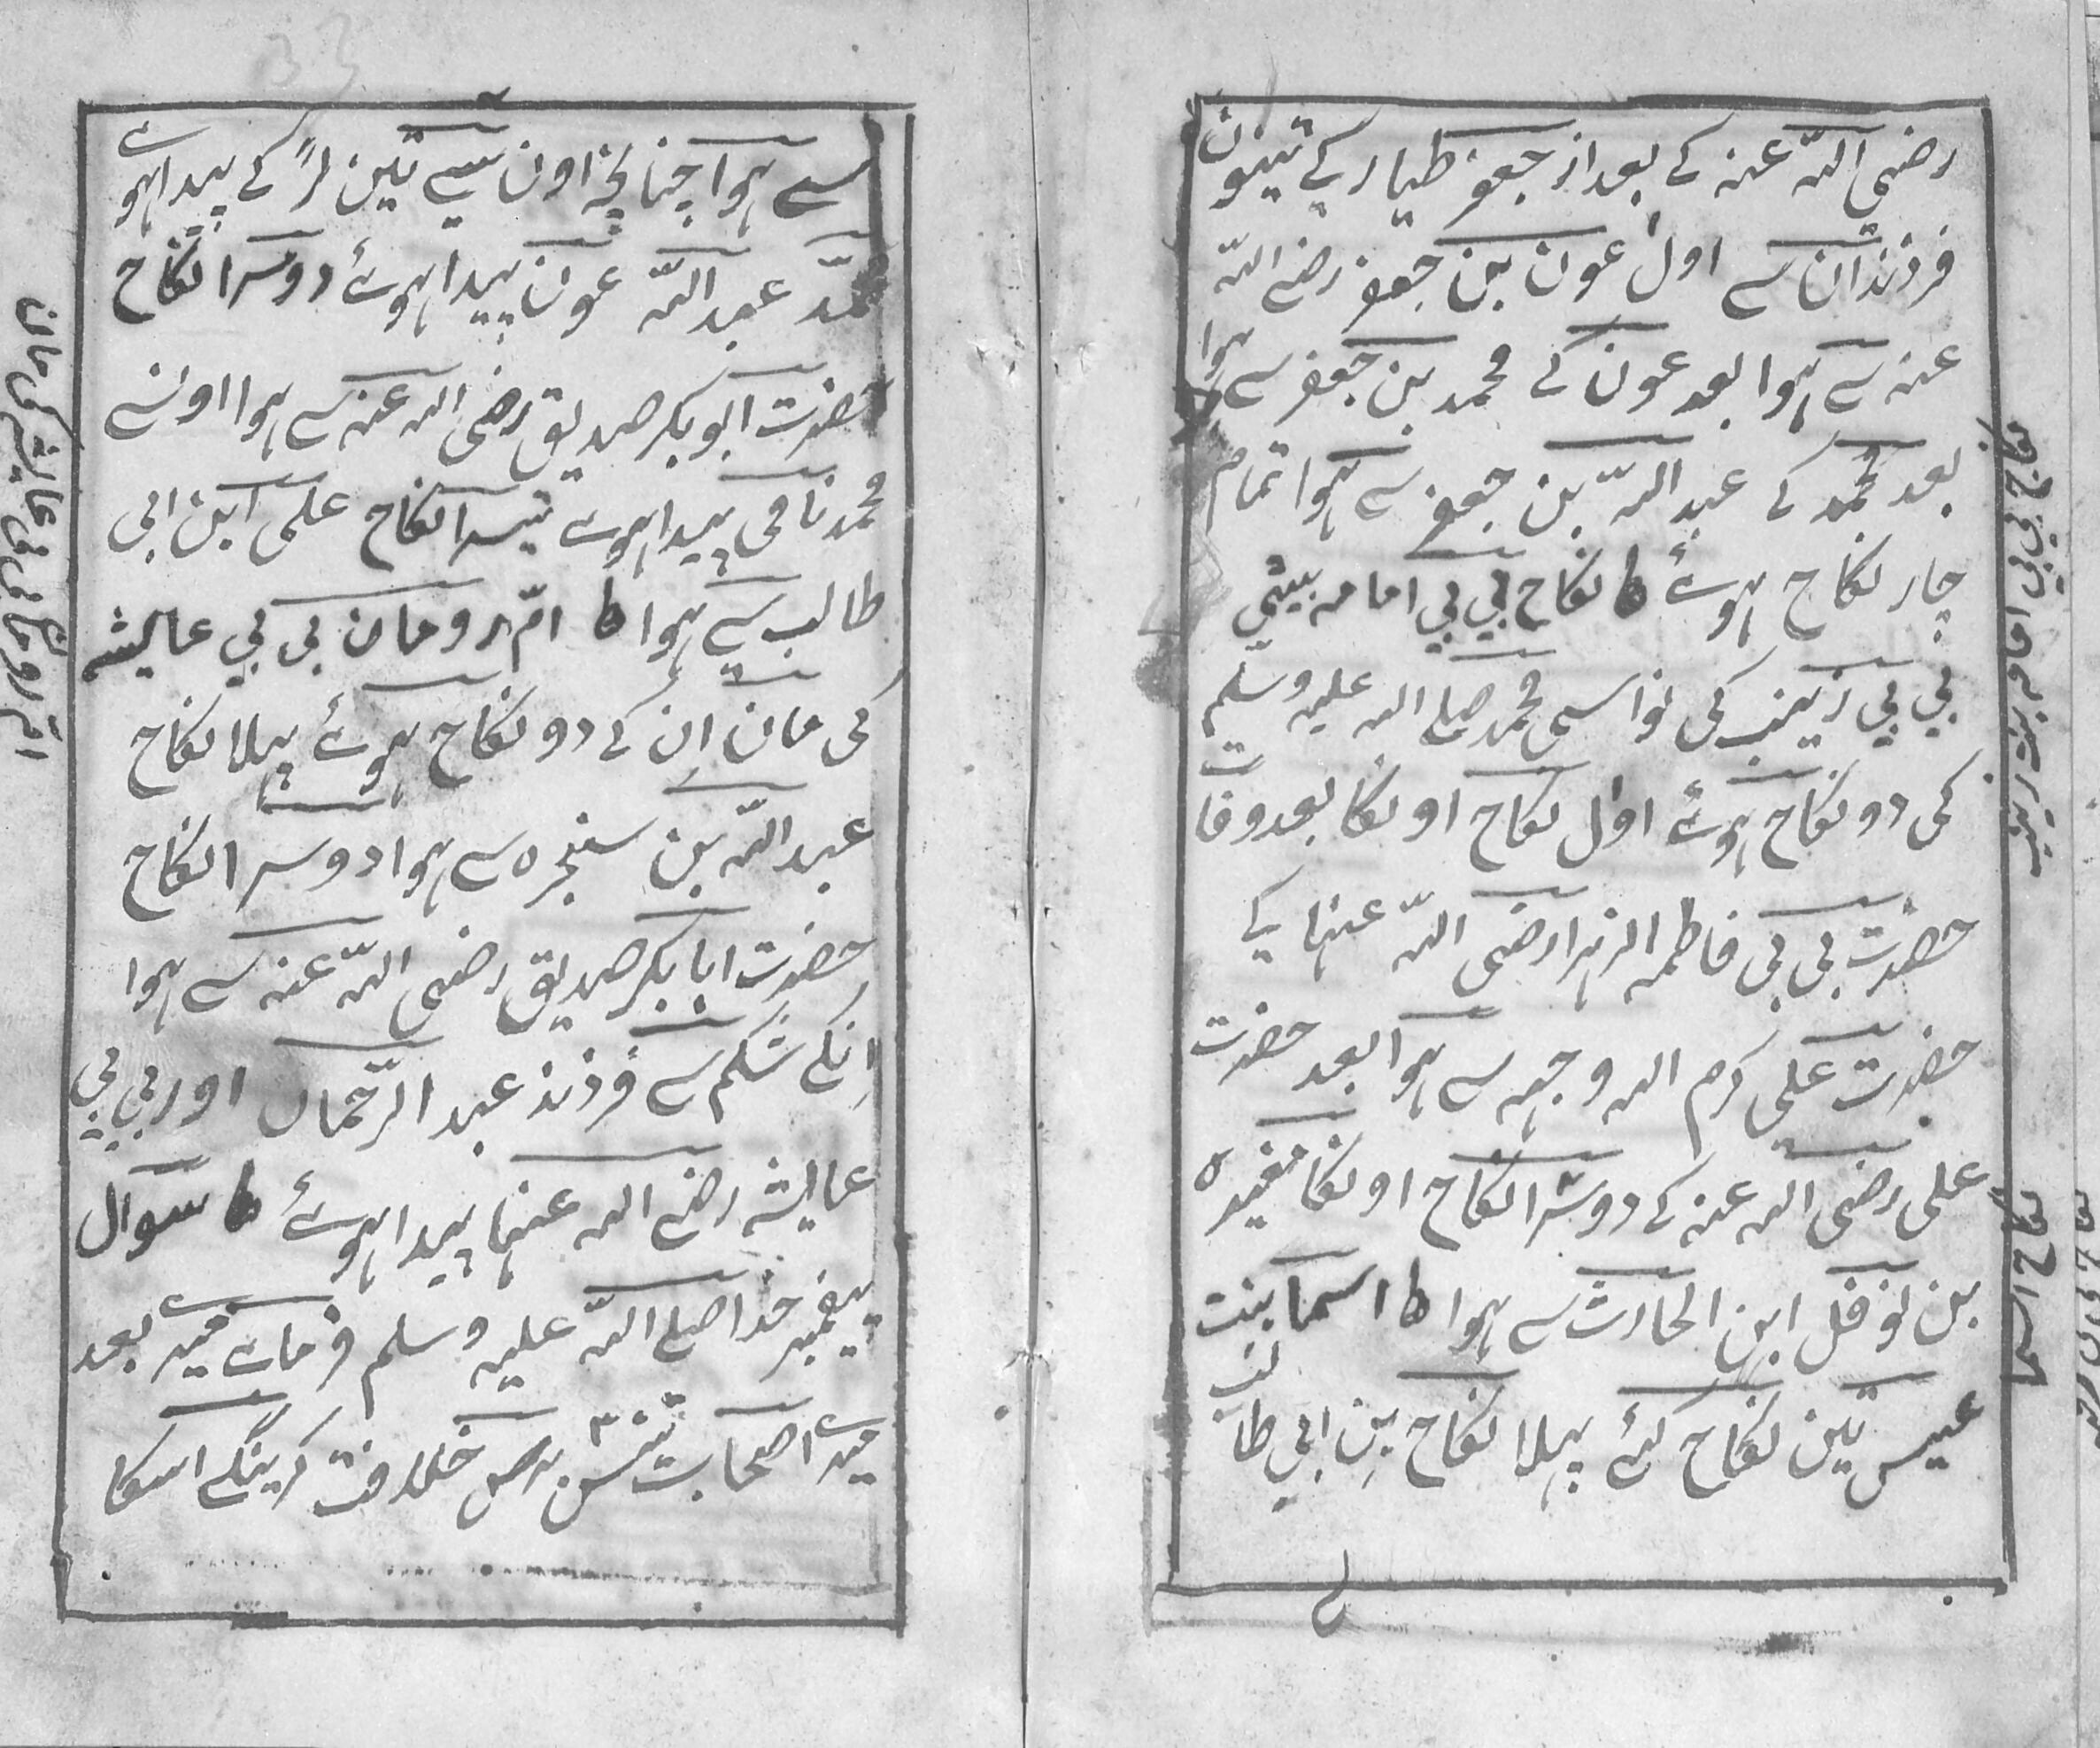 رضی اللہ عنہ کے بعد از جعفر طیار کے تینون
فرزندان سے اول عون بن جعفر رضی اللہ
عنہ سے ہوا بعد عون کے محمد بن جعفر سے ہوا
بعد محمد کے عبد اللہ بن جعفر سے ہوا تمام
چار نکاح ہوئے نکاح بی بی امامہ بیٹی
بی بی زینب کی نواسی محمد صلی اللہ علیہ وسلم
کی دو نکاح ہوئے اول نکاح اونکا بعد وفات
حضرت بی بی فاطمہ الزہرا رضی اللہ عنہا کے
حضرت علی کرم اللہ وجہہ سے ہوا بعد حضرت
علی رضی اللہ عنہ کے دوسرا نکاح اونکا مغیرہ
بن نوفل ابن الحارث سے ہوا اسما بنت
عمیس تین نکاح کئے پہلا نکاح بن ابی طالب
سے ہوا چنانچہ اون سے تین لڑکے پیدا ہوے
محمد عبد اللہ عون پیدا ہوئے دوسرا نکاح
حضرت ابوبکر صدیق رضی اللہ عنہ سے ہوا اونسے
محمد نامی پیدا ہوے تیسرا نکاح علی ابن ابی
طالب سے ہوا ام رومان بی بی عایشہ
کی مان ان کے دو نکاح ہوئے پہلا نکاح
عبد اللہ بن سنجرہ سے ہوا دوسرا نکاح
حضرت ابابکر صدیق رضی اللہ عنہ سے ہوا
انکے شکم سے فرزند عبد الرحمان اور بی بی
عایشہ رضی اللہ عنہا پیدا ہوئے سوال
پیغمبر خدا صلی اللہ علیہ وسلم فرماے میرے بعد
میرے اصحاب خلافت کرینگے اسکا
ام رومان بی بی عایشہ کی مان